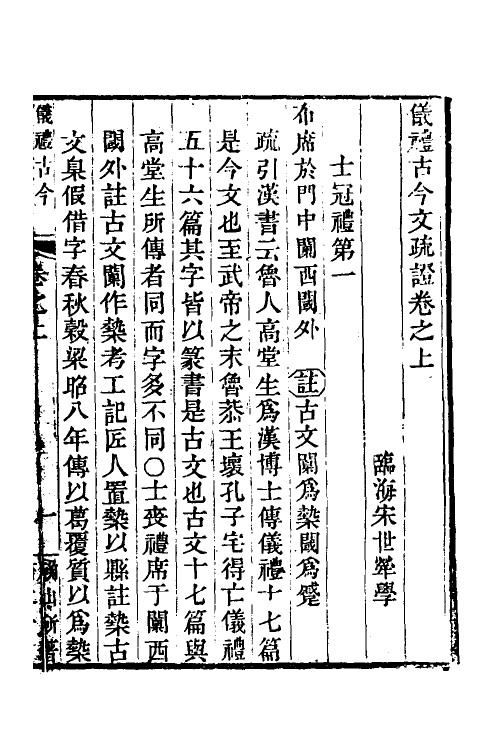 儀禮古今文疏證卷之上
臨海宋世犖學
士冠禮第一
布席於門中闑西閾外 註古文闑爲槷閾爲蹙
疏引漢書云魯人高堂生爲漢博士傳儀禮十七篇
是今文也至武帝之末魯恭王壞孔子宅得亡儀禮
五十六篇其字皆以篆書是古文也古文十七篇與
高堂生所傳者同而字多不同〇士喪禮席于闑西
閾外註古文闑作槷考工記匠人置槷以縣註槷古
文臬假借字春秋穀梁昭八年傳以葛覆質以爲槷
儀禮古今 卷之上 一